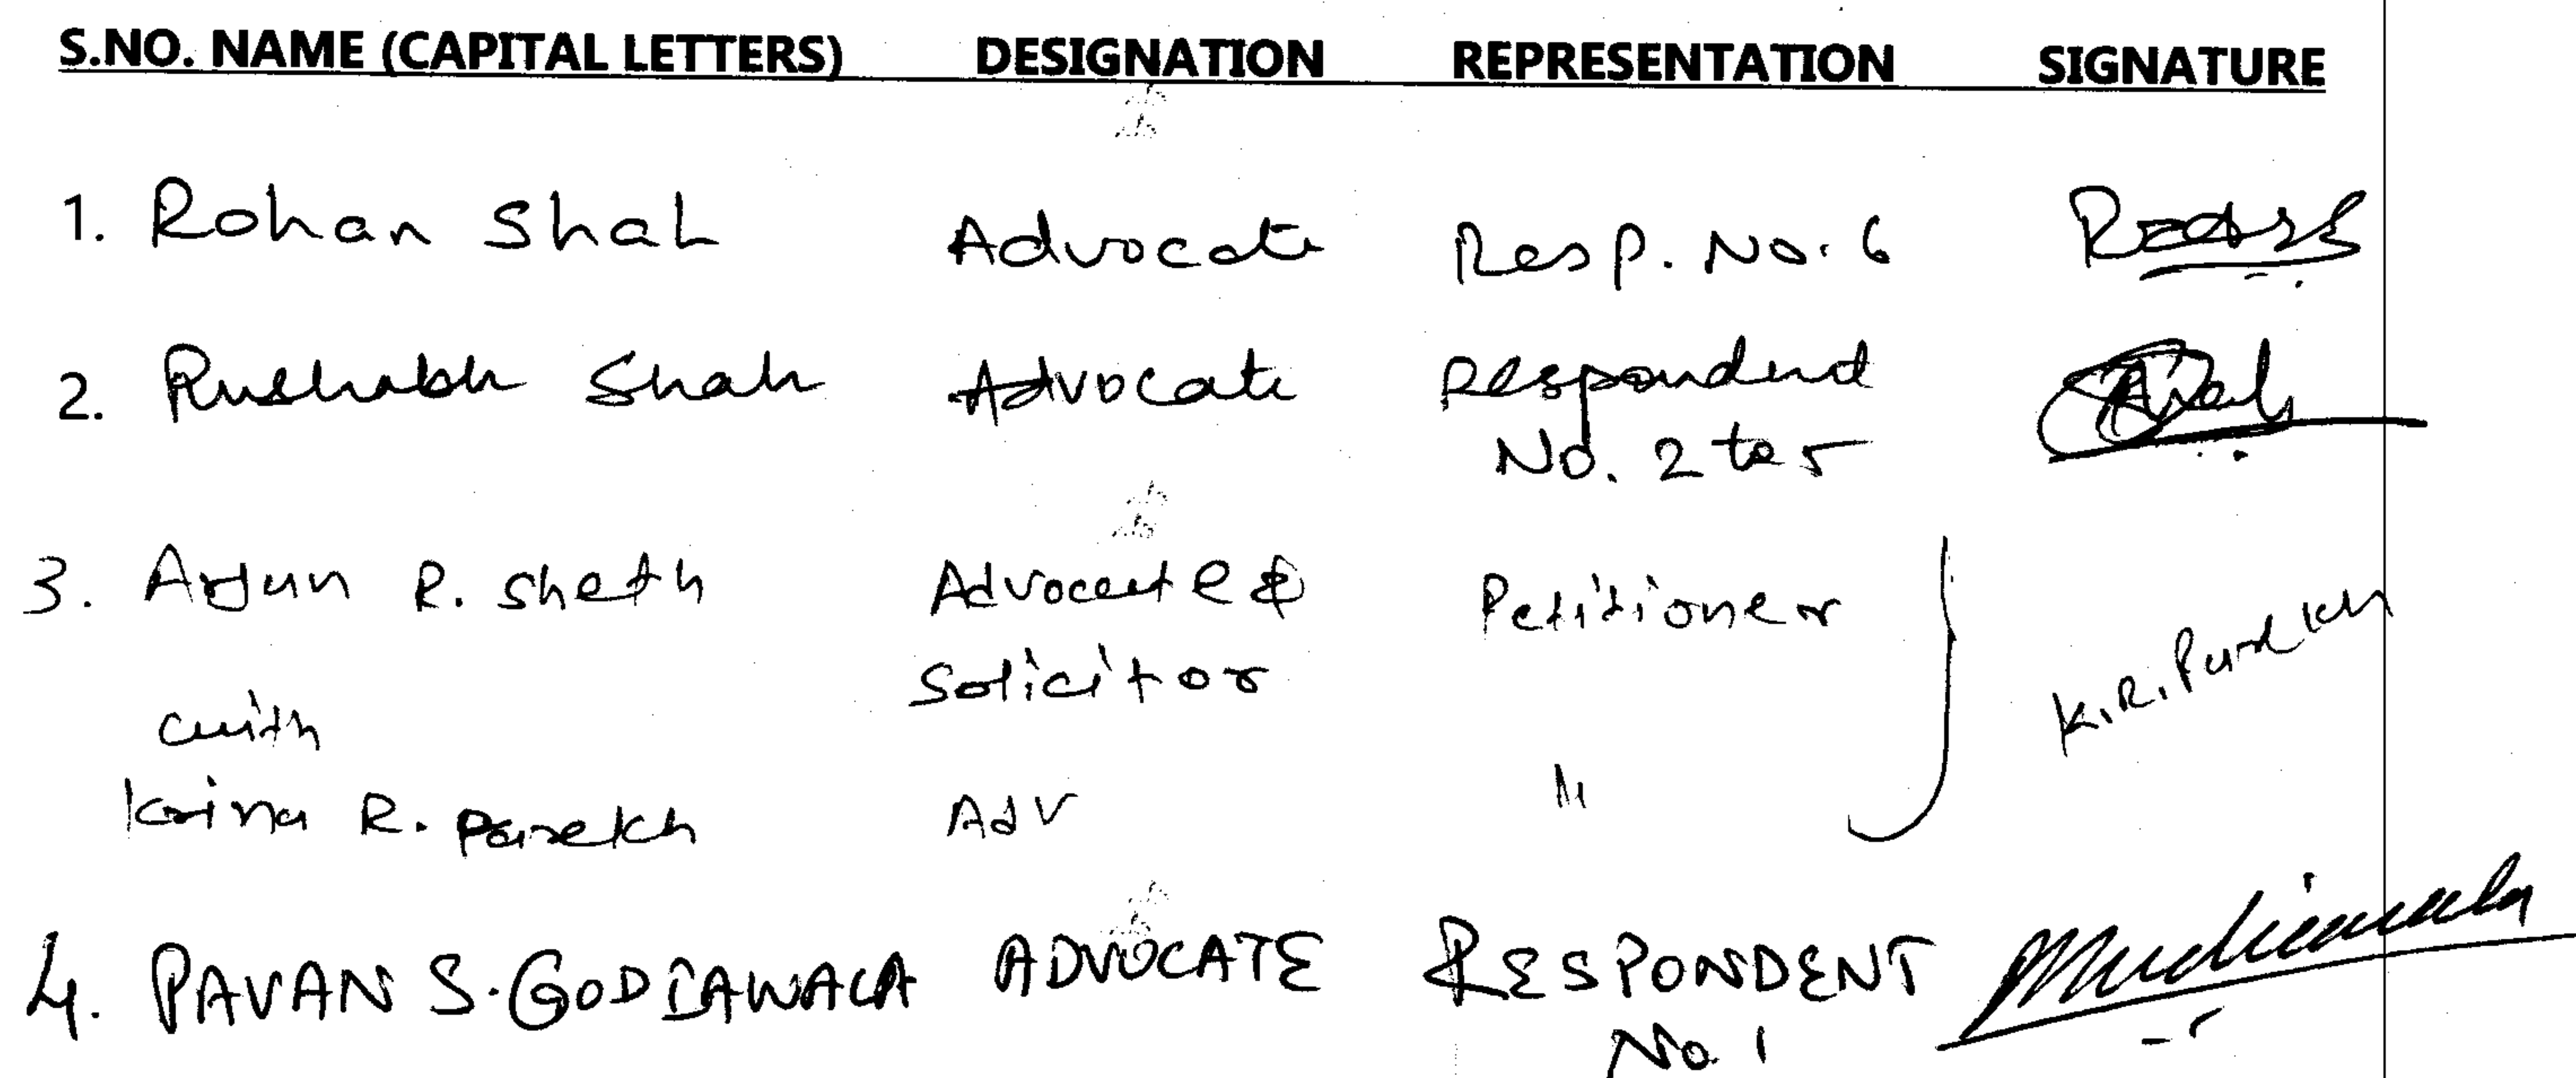 S.NO. NAME (CAPITAL LETTERS) DESIGNATION REPRESENTATION SIGNATURE
1. Rohan Shah Advocate Resp. No. 6
2. Rushabh Shah Advocate Respondent
No. 2 to 5
3. Arjun R. Sheth Advocate & Petitioner
Solicitor
K.R. Parekh
with
Krina R. Parekh Adv "
4. PAVAN S. GODIAWALA ADVOCATE RESPONDENT
No. 1